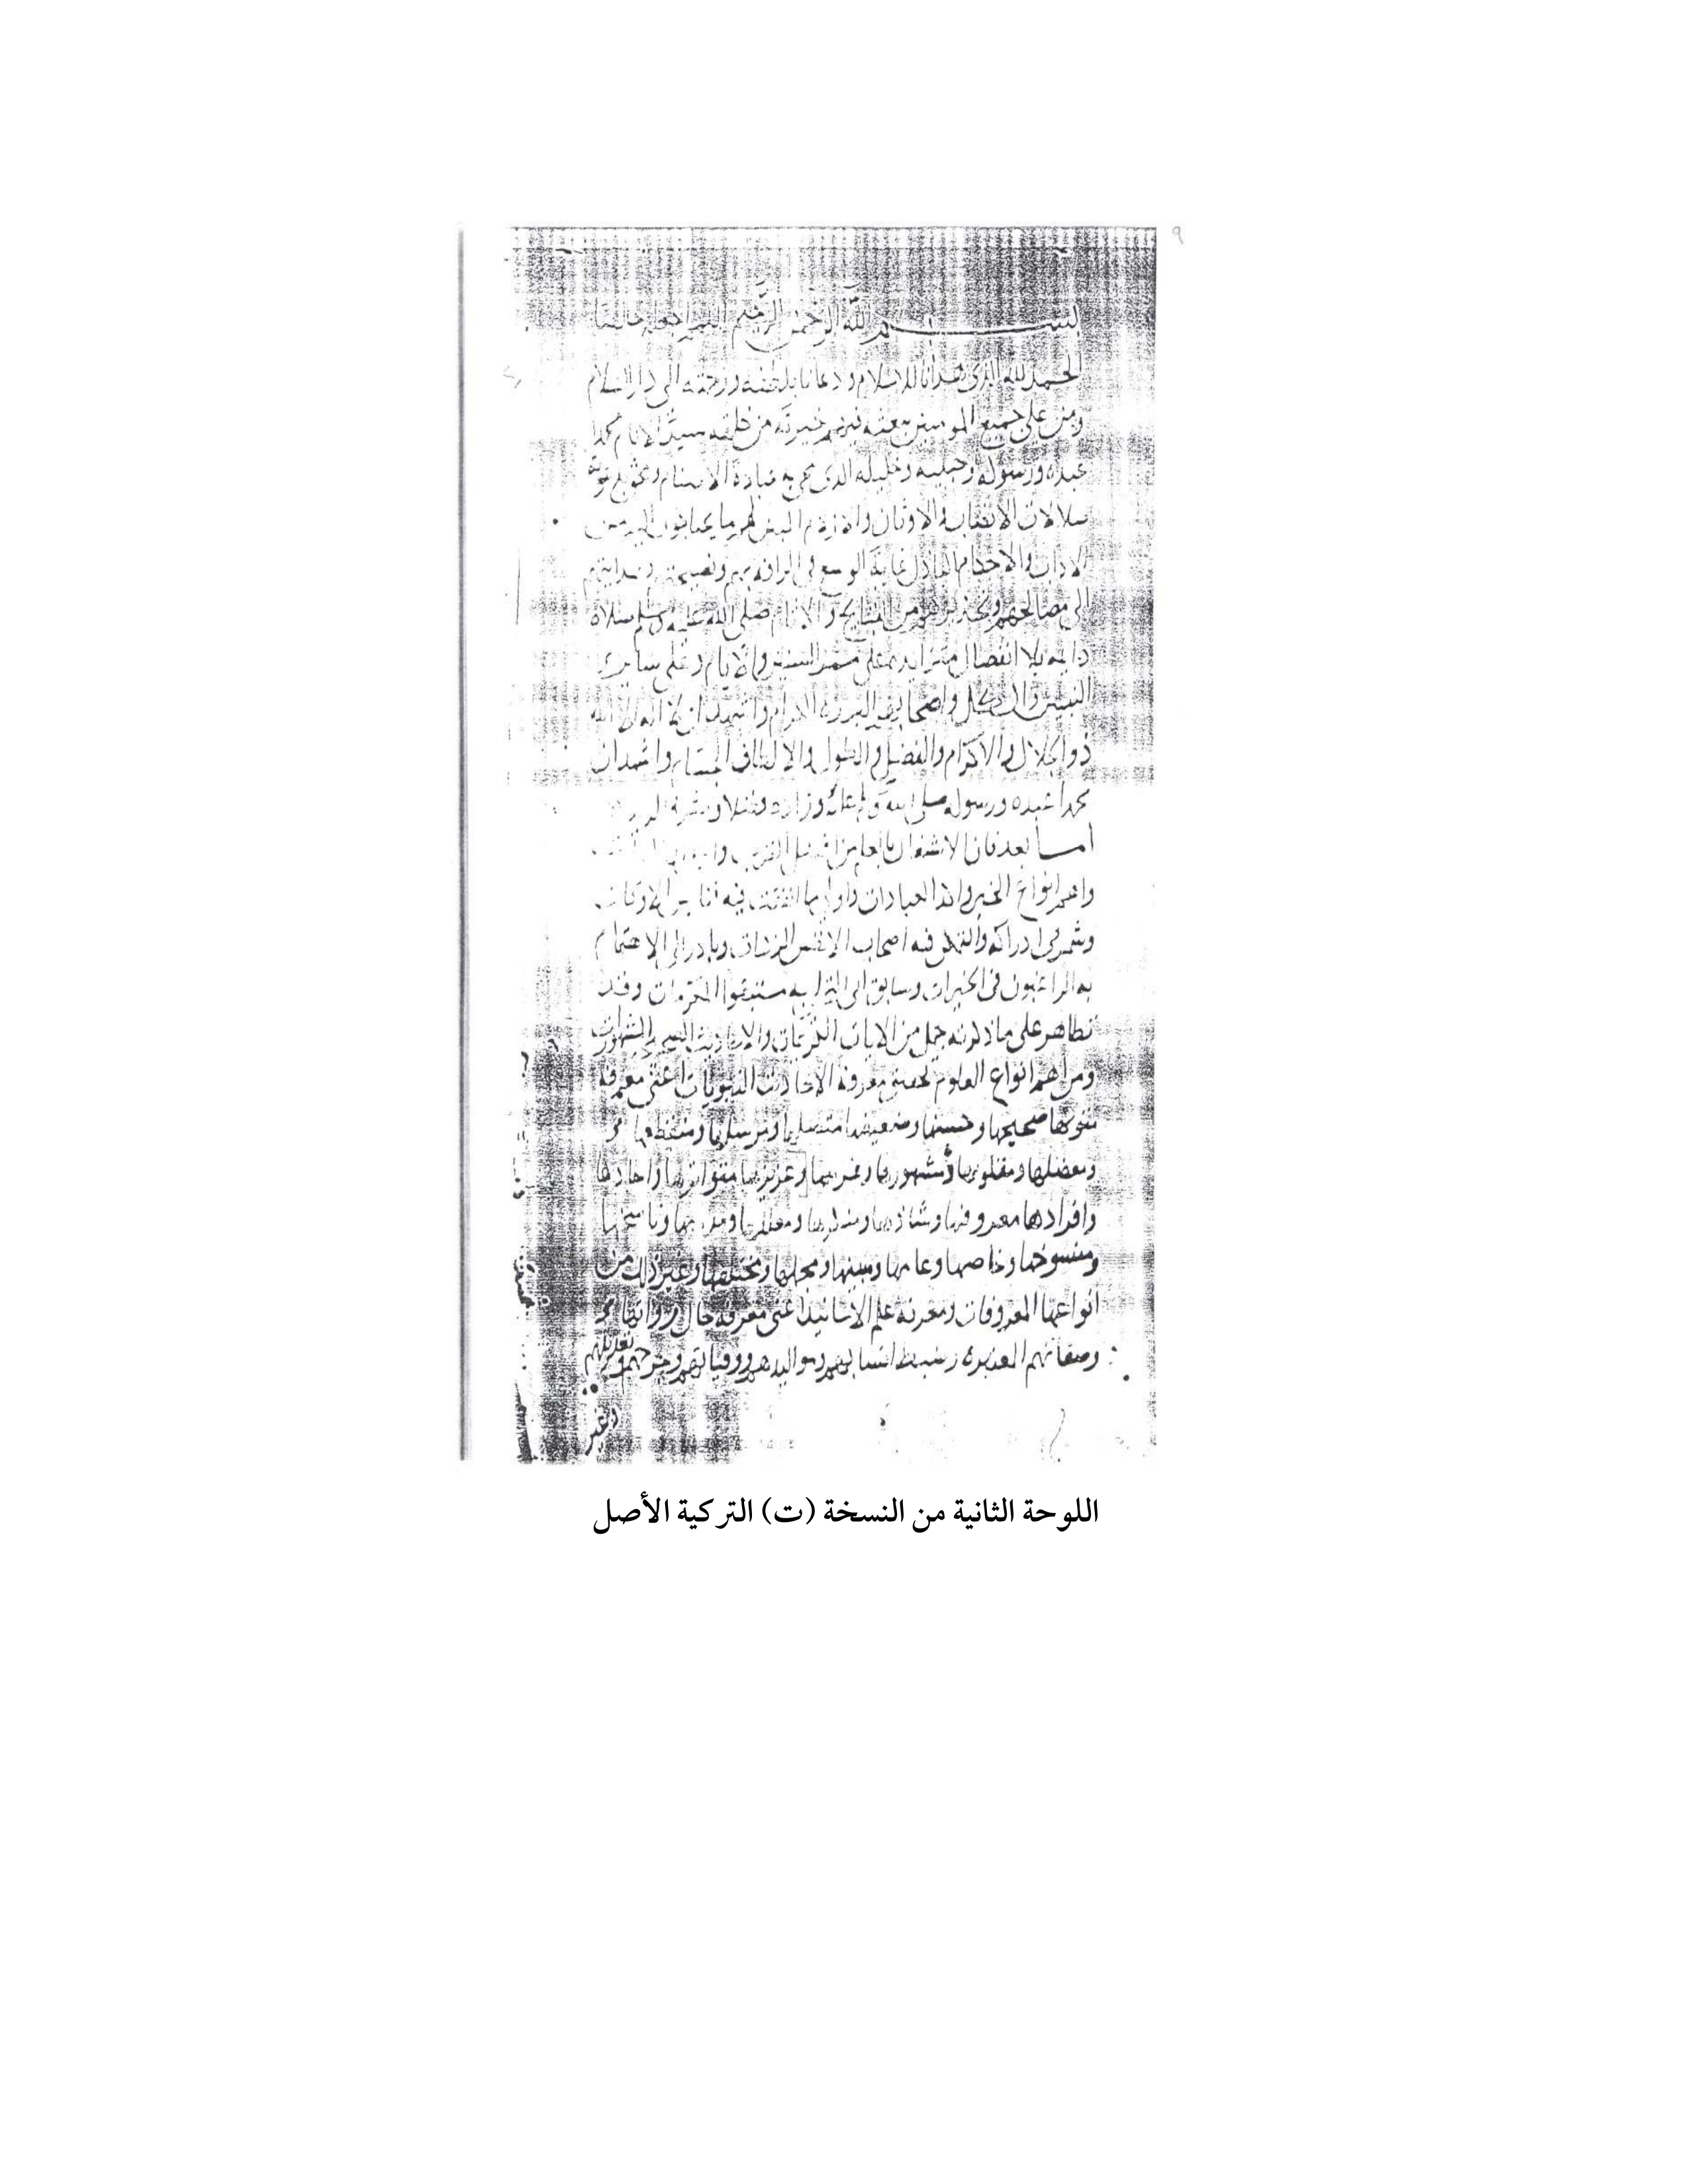 ٩
بسم الله الرحمن الرحيم اللهم اجعله خالصا
الحمد لله الذي هدانا للاسلام ودعانا بلطفه ورحمته الى دار السلام
ومن على جميع المومنين من خلقه سيد الانام محمدا
عبده ورسوله وحبيبه وخليله الذي محى به عبادة الاصنام
الانصاب والاوثان والازلام
الاداب والاحكام الباذل غاية الوسع في الرافة بهم ونصيحتهم وهدايتهم
الى مصالحهم وتحذيرهم من القبايح والاثام صلى الله عليه وسلم صلاة
دايمة بلا انفصال متزايدة على ممر السنين والايام وعلى ساير
النبيين وال كل واصحابهم البررة الكرام واشهد ان لا اله الا الله
ذو الجلال والاكرام والفضل والطول والالطاف الجسام واشهد ان
محمدا عبده ورسوله صلى الله وسلم عليه وزاده فضلا وشرفا لديه
اما بعد فان الاشتغال بالعلم من افضل القرب
واهم انواع الخير واكد العبادات واولى ما انفقت فيه نفايس الاوقات
وشمر في ادراكه والتمكن فيه اصحاب الانفس الزكيات وبادر الى الاهتمام
به الراغبون في الخيرات وسابق الى التحلي به مستبقوا المكرمات وقد
تظاهر على ما ذكرته جمل من الايات الكريمات والاحاديث الصحيحة المشهورات
ومن اهم انواع العلوم تحقيق معرفة الاحاديث النبويات اعني معرفة
متونها صحيحها وحسنها وضعيفها متصلها ومرسلها ومنقطعها
ومعضلها ومقلوبها ومشهورها وغريبها وعزيزها متواترها واحادها
وافرادها معروفها وشاذها ومنكرها ومعللها ومدرجها وناسخها
ومنسوخها وخاصها وعامها ومبينها ومجملها ومختلفها وغير ذلك من
انواعها المعروفات ومعرفة علم الاسانيد اعني معرفة حال رواتها
وصفاتهم المعتبرة وضبط انسابهم ومواليدهم ووفياتهم وجرحهم وتعديلهم
وغير
اللوحة الثانية من النسخة (ت) التركية الأصل